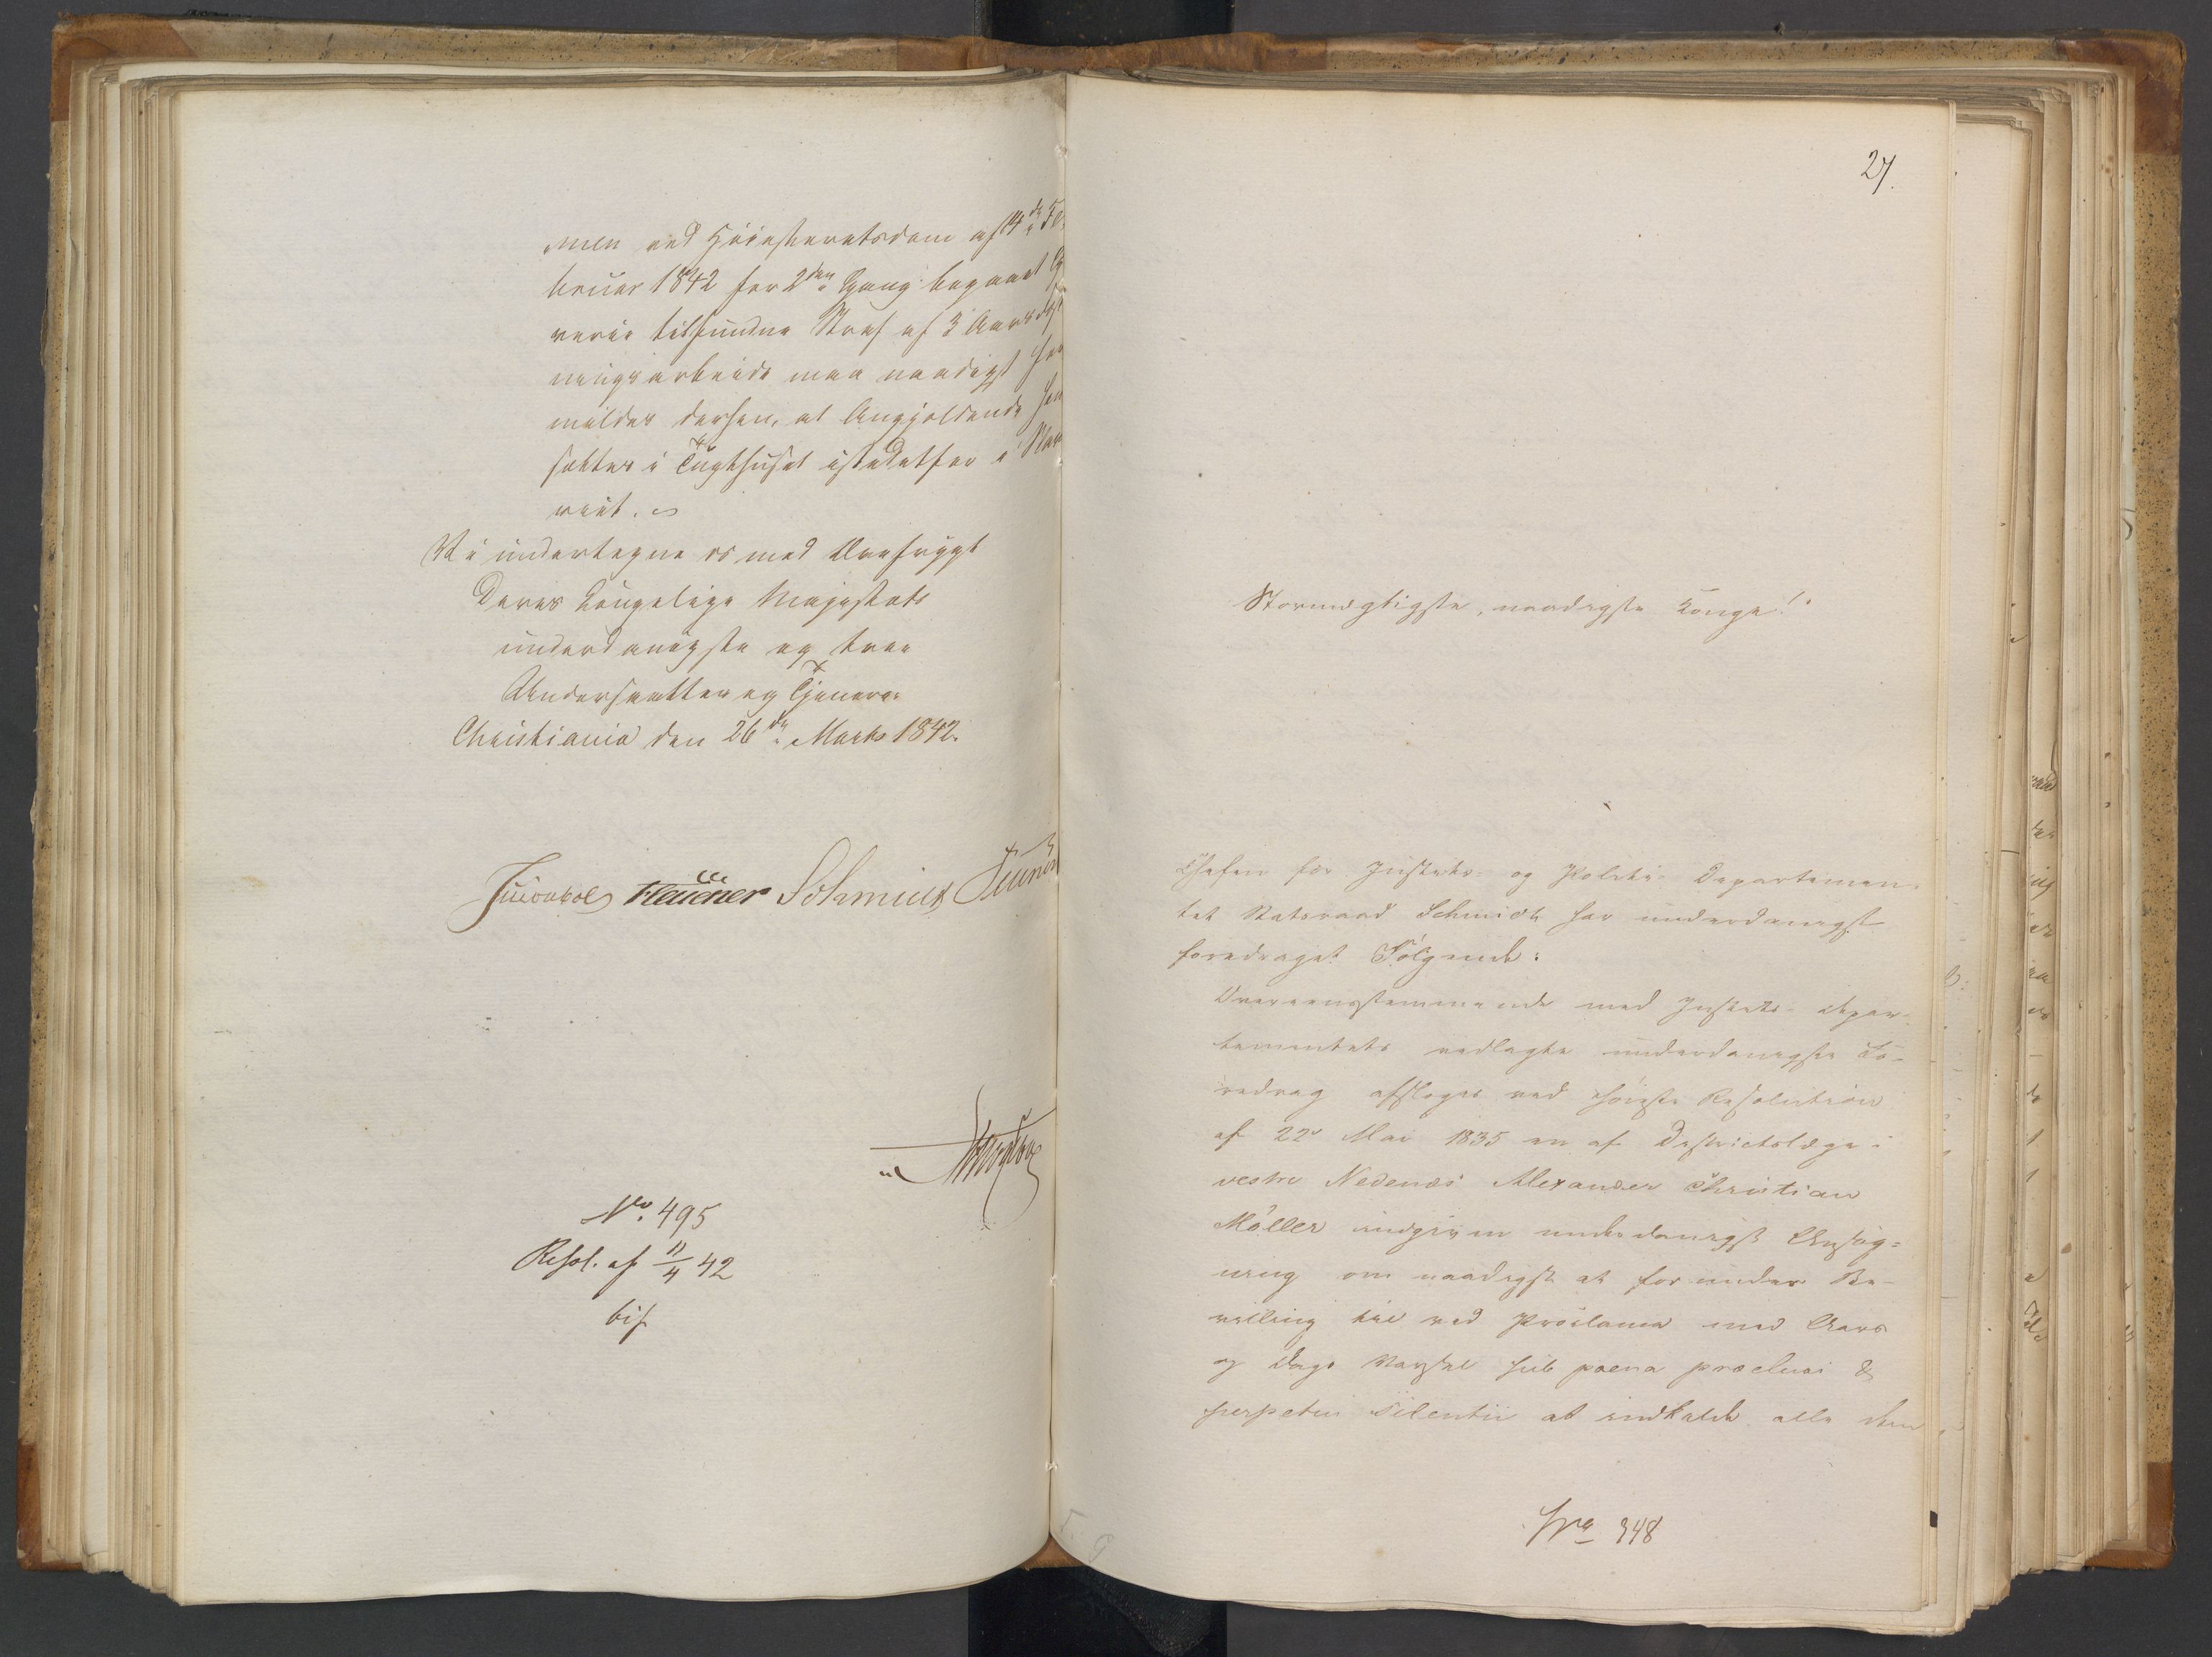 men ved Høiesteretsdom af 14de Fe-
bruar 1842 for 2den Gang begaaet
verie tilfundne Straf af 3 Aars
ningsarbeide maa naadigst for
mildes derhen, at Angjeldende hen
sættes i Tugthuset istedetfor i Slav
veriet.
Vi undertegne os med Ærefrygt
Deres Kongelige Majestæts
underdanigste og troe
Undersaatter og Tjenere.
Christiania den 26de Marts 1842.
Schmidt
No. 495
Resol. af 11/4 42
bif
27.
Stormægtigste, naadigste Konge!
Chefen for Justits- og Politie-Departemen-
tet Statsraad Schmidt har underdanigst
foredraget Følgende:
Overeensstemmende med Justits-Depar-
tementets vedlagte underdanigste Fo-
redrag afsloges ved høieste Resolution
af 22de Mai 1835 en af Districtslæge i
vestre Nedenæs Alexander Christian
Möller indgiven underdanigst Ansøg-
ning om naadigst at forundes Be-
villing til ved Proclama med Aars
og Dags Varsel sub poena præclusi &
perpetui silentii at indkalde alle dem
348